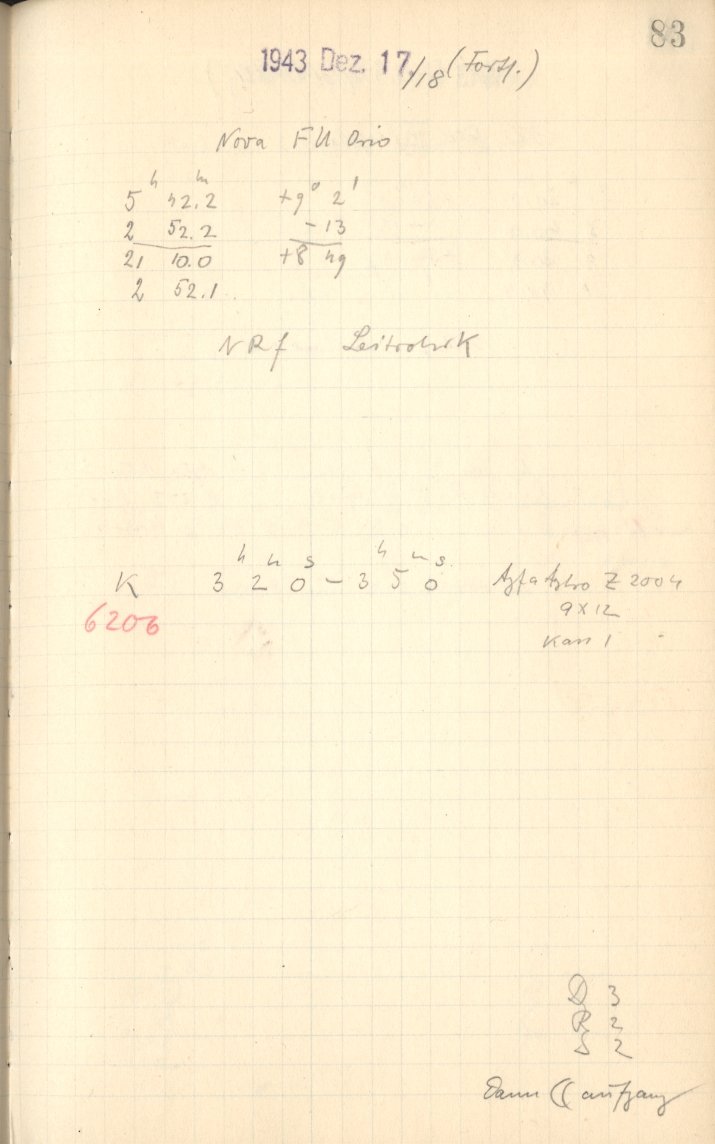 83
1943 Dez. 17./18 (Forts.)
Nova FU Orio
5 h 42.2 m +9° 2'
2 52.2 -13
21 10.0 +8 49
2 52.1
NRf
K 3 h 2 m 0 s - 3 h 5 m 0 s Agfa Astro Z 2004
6206 9x12
Kass 1
D 3
R 2
S 2
Dann ☾ aufgang